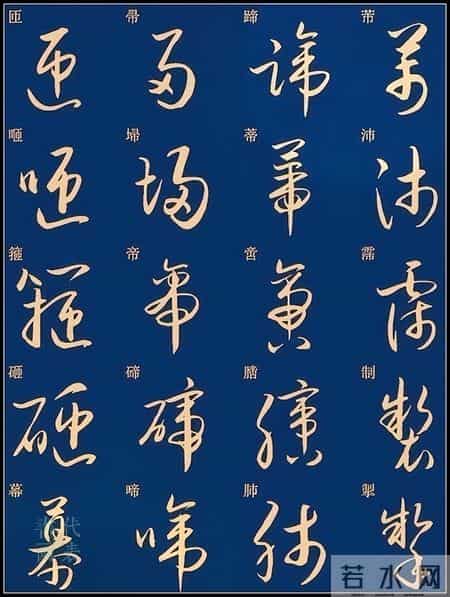 匝 帚 蹄 芾
咂 埽 蒂 沛
箍 帝 啻 霈
砸 碲 膪 制
幕 啼 肺 掣
若水网